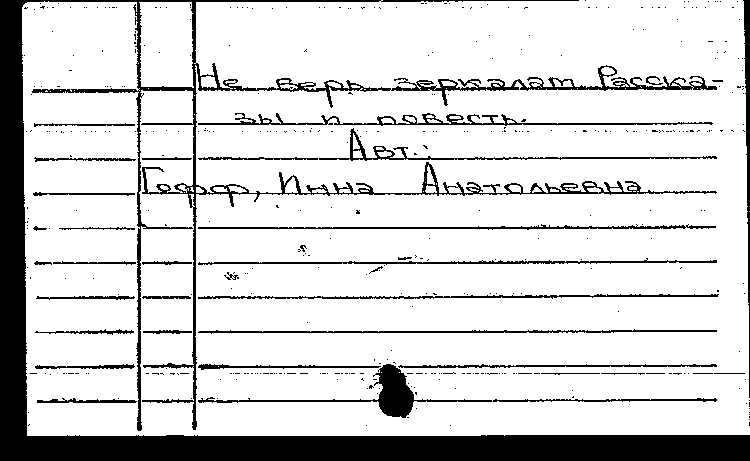 Не верь зеркалам. Расска-
зы и повесть.
Авт.:
Гофф, Инна Анатольевна.